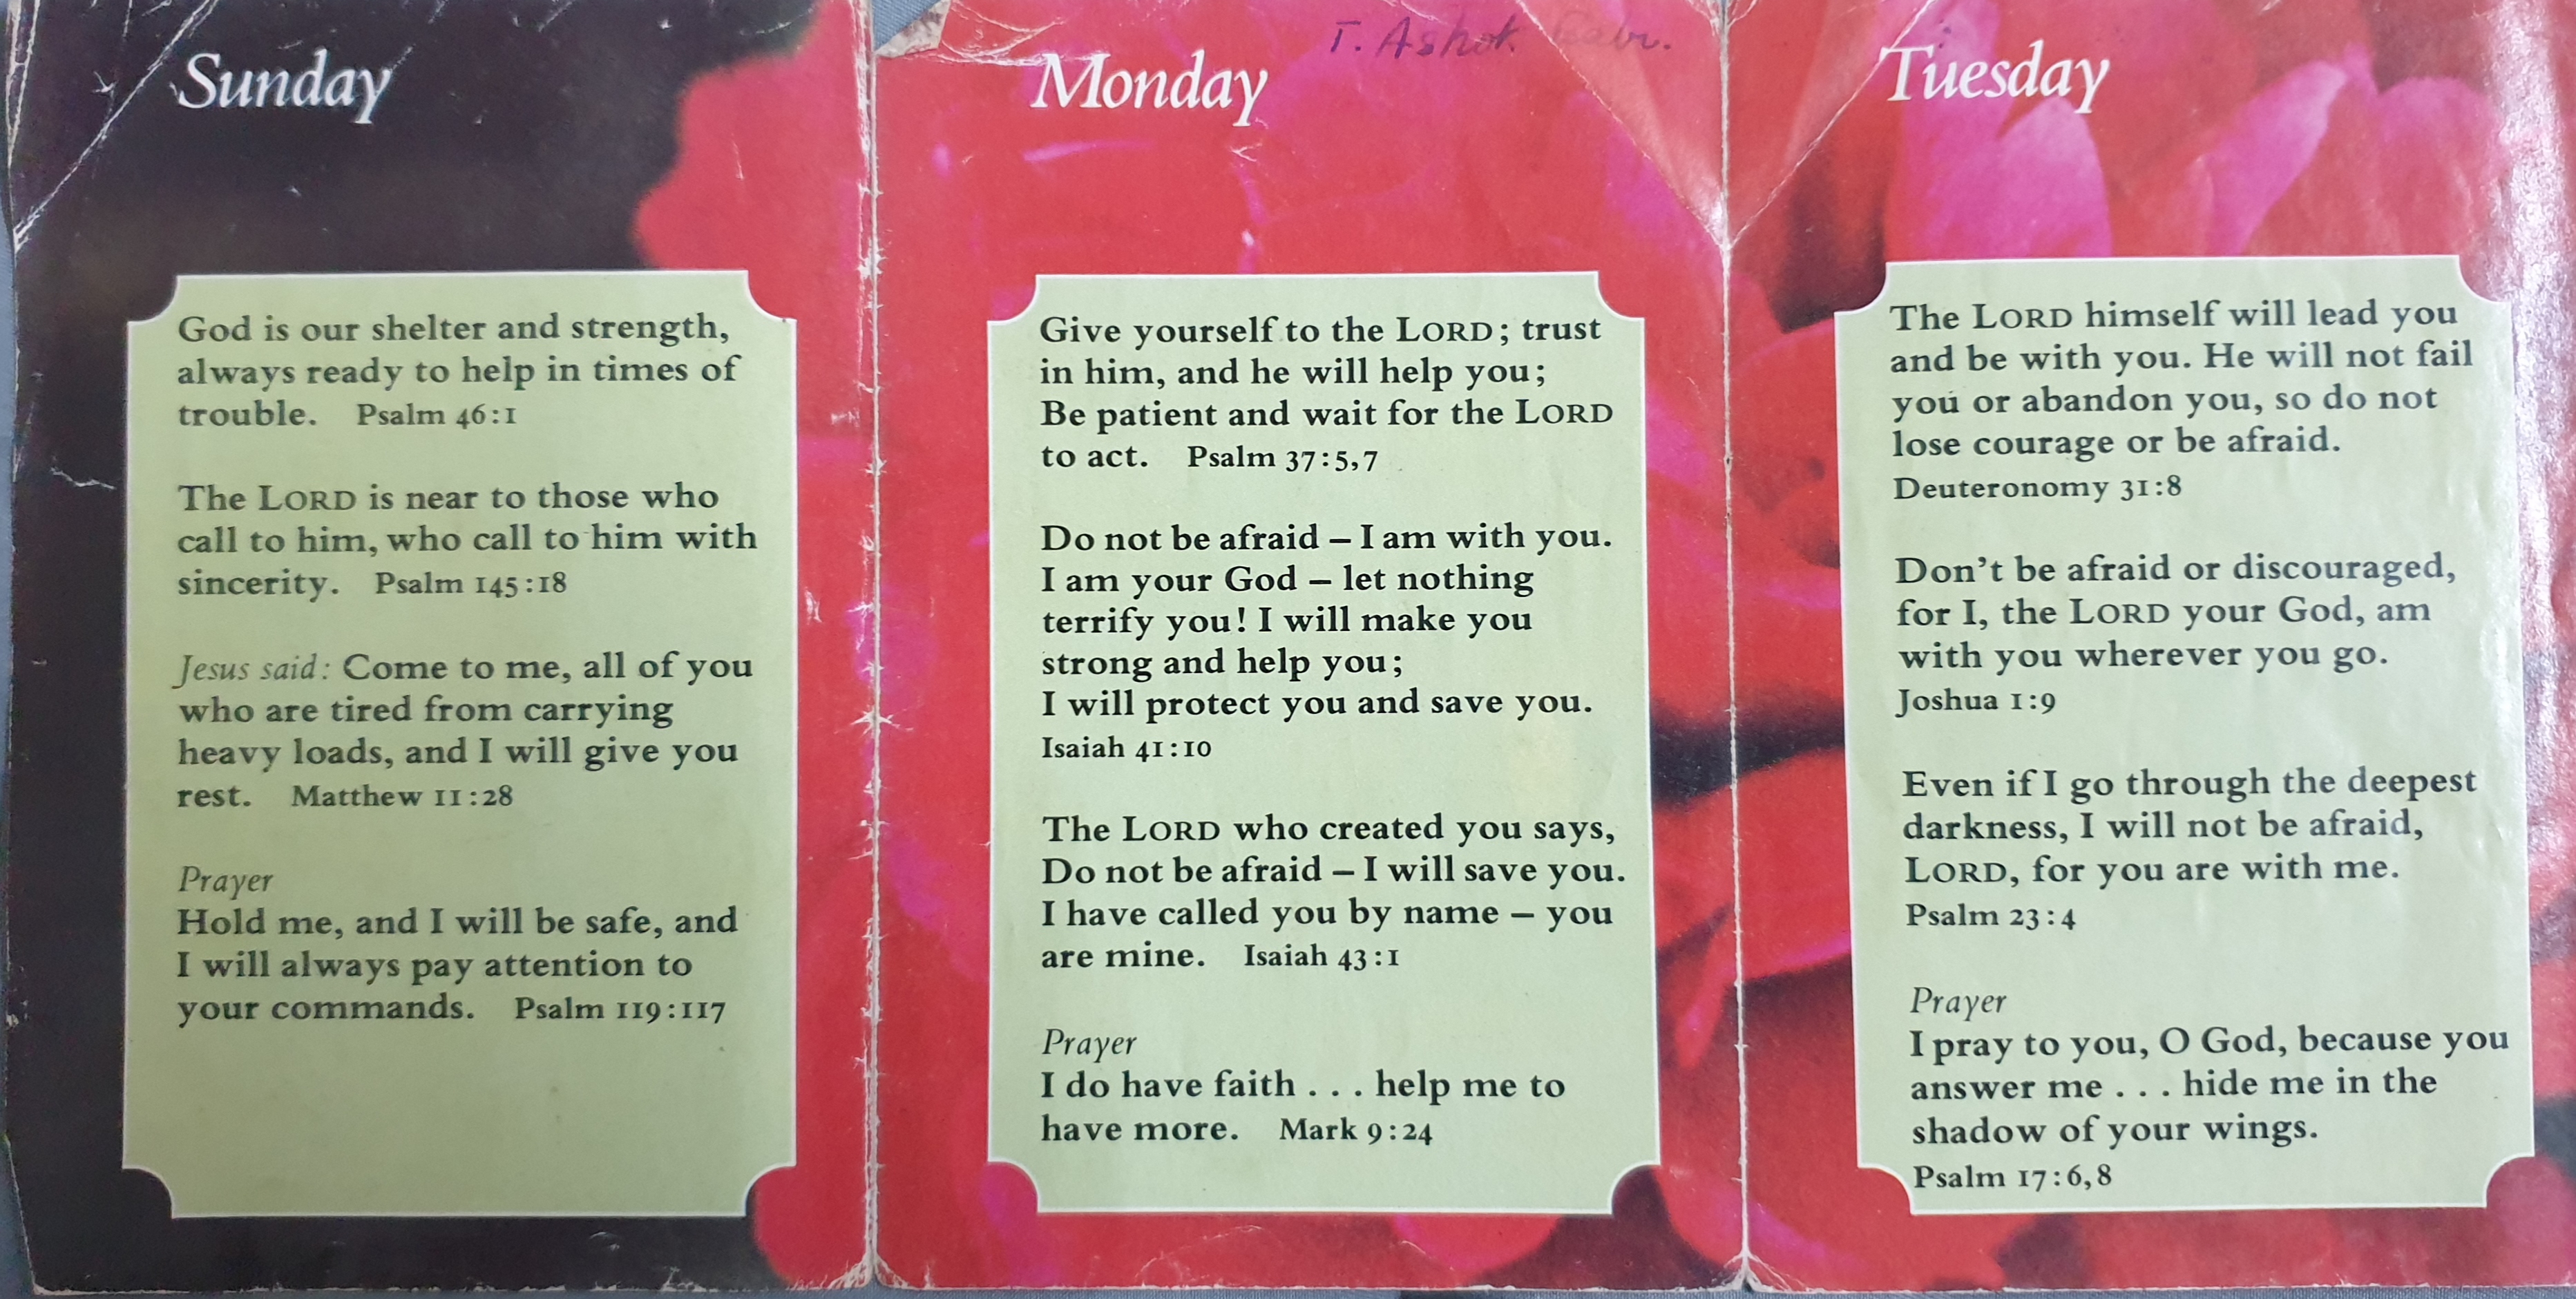 Sunday
God is our shelter and strength,
always ready to help in times of
trouble. Psalm 46:1
The LORD is near to those who
call to him, who call to him with
sincerity. Psalm 145:18
Jesus said: Come to me, all of you
who are tired from carrying
heavy loads, and I will give you
rest. Matthew 11:28
Prayer
Hold me, and I will be safe, and
I will always pay attention to
your commands. Psalm 119:117
T. Ashok
Monday
Give yourself to the LORD; trust
in him, and he will help you;
Be patient and wait for the LORD
to act. Psalm 37:5,7
Do not be afraid – I am with you.
I am your God – let nothing
terrify you! I will make you
strong and help you;
I will protect you and save you.
Isaiah 41:10
The LORD who created you says,
Do not be afraid – I will save you.
I have called you by name – you
are mine. Isaiah 43:1
Prayer
I do have faith . . . help me to
have more. Mark 9:24
Tuesday
The LORD himself will lead you
and be with you. He will not fail
you or abandon you, so do not
lose courage or be afraid.
Deuteronomy 31:8
Don't be afraid or discouraged,
for I, the LORD your God, am
with you wherever you go.
Joshua 1:9
Even if I go through the deepest
darkness, I will not be afraid,
LORD, for you are with me.
Psalm 23:4
Prayer
I pray to you, O God, because you
answer me . . . hide me in the
shadow of your wings.
Psalm 17:6,8